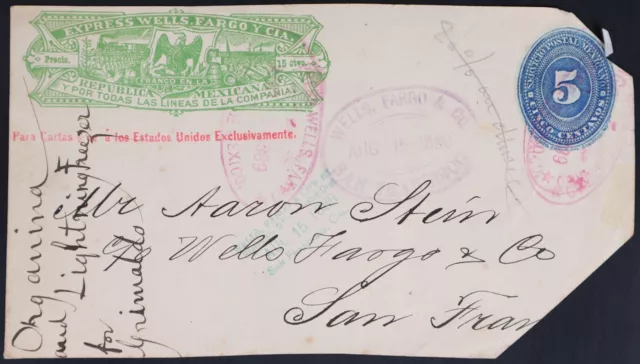 EXPRESS WELLS, FARGO Y CIA.
Precio.
15 ctvs.
FRANCO EN LA
REPUBLICA MEXICANA
Y POR TODAS LAS LINEAS DE LA COMPAÑIA.
Para Cartas a los Estados Unidos Exclusivamente.
SERVICIO POSTAL MEXICANO
5
CINCO CENTAVOS
WELLS, FARGO & CO.
AUG 15
SAN
WELLS, FAR
Mr Aaron Stein
Wells Fargo & Co
San Fran
Organina
and Lightning Freezer
for
Grimaldo